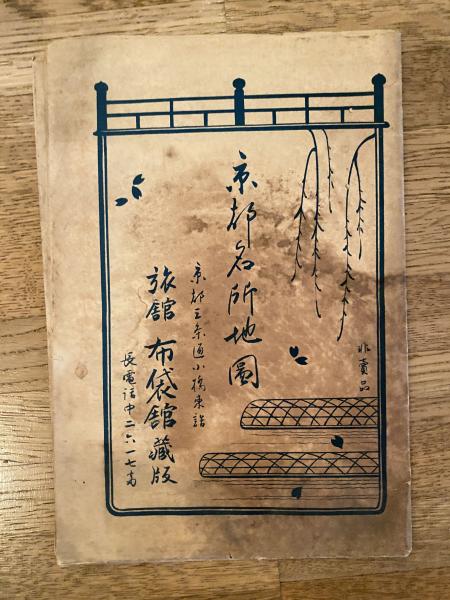 非賣品
京都名所地圖
京都三条通小橋東詰
旅舘 布袋舘藏版
長電話中二六一七番